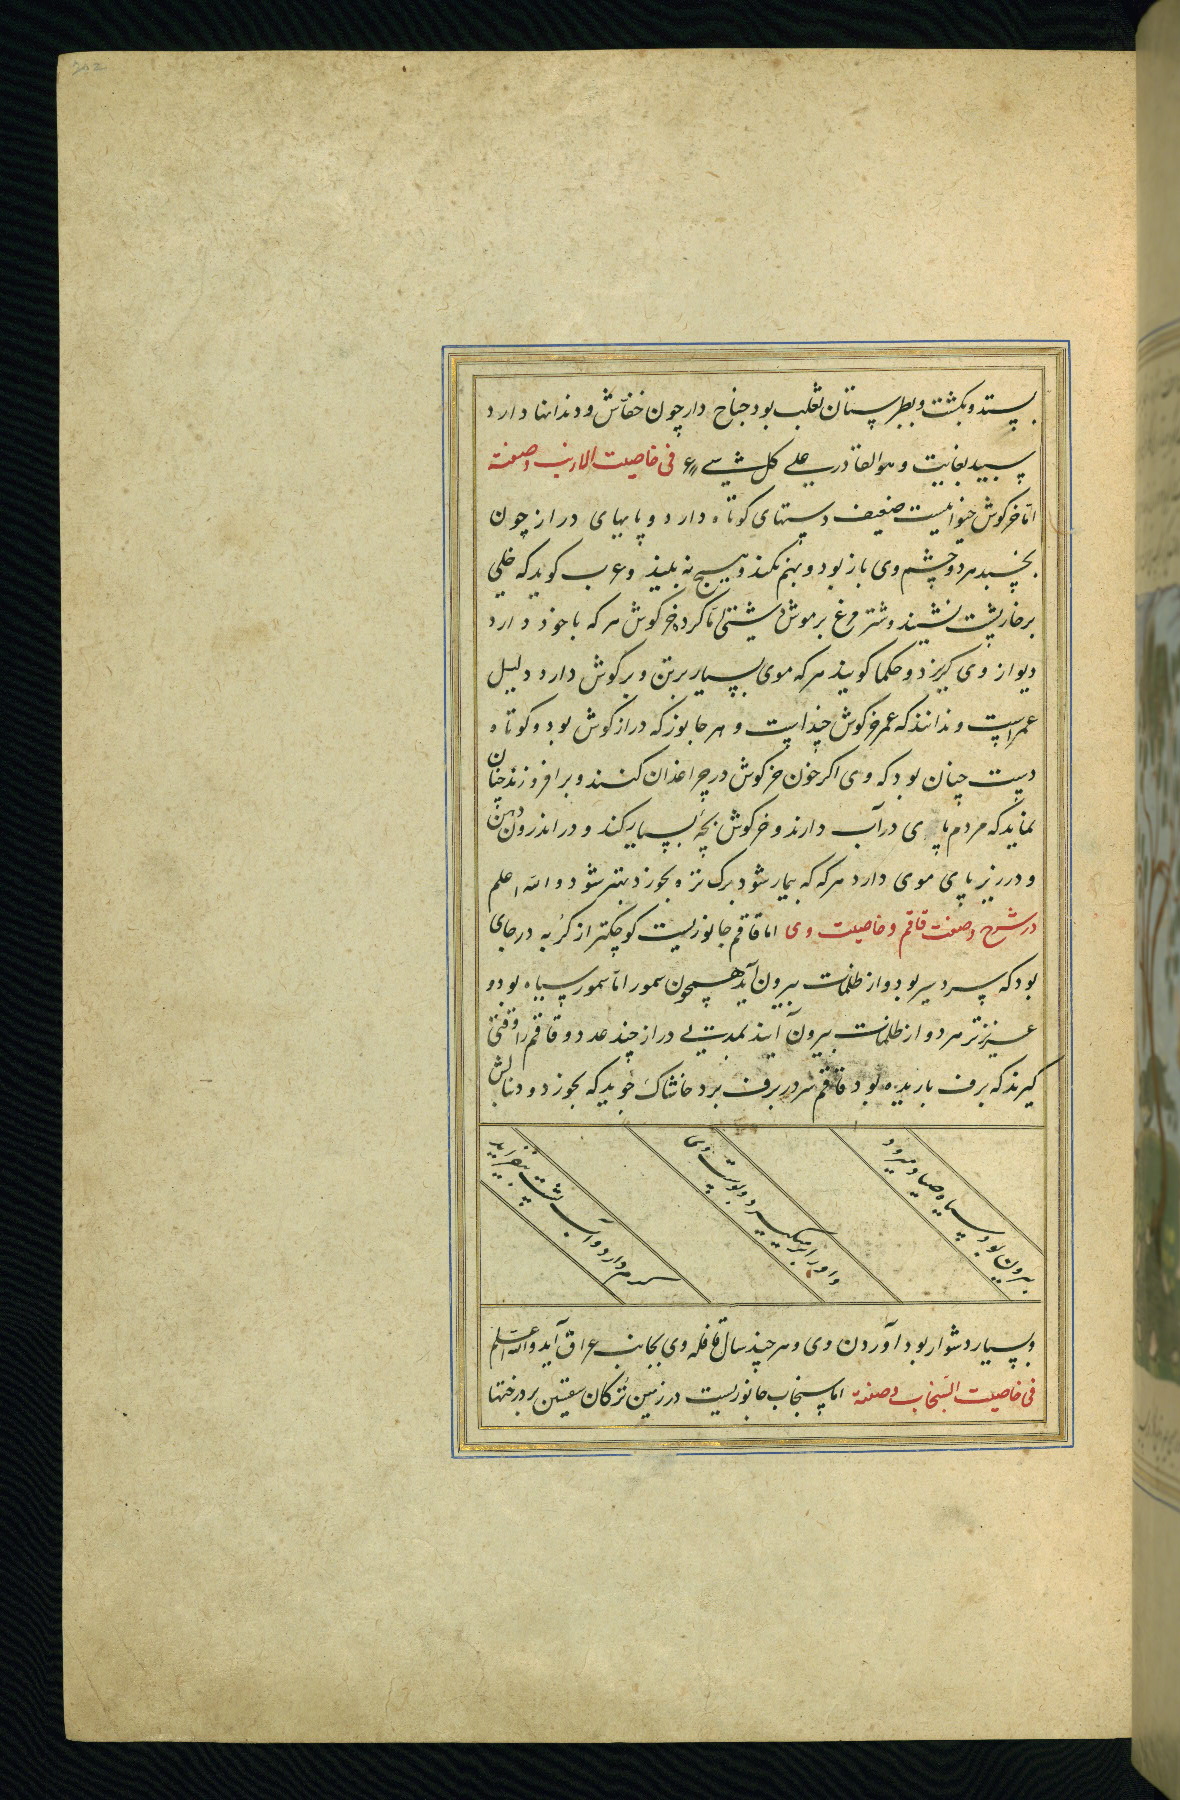 بستد و بکشت و بطبرستان ثعلب بود جناح دار چون خفّاش و دندانها دارد
سپید بغایت و هو القادر علی کل شیء فی خاصیت الارنب و صفته
امّا خرکوش حیوانیست ضعیف دستهای کوتاه دارد و پایهای دراز چون
بخسبد هر دو چشم وی باز بود و بهم نکند و هیچ نه بیند و عرب کوید که
بر خارپشت نشیند و شترمرغ بر موش خرکوش هر که با خود دارد
دیو از وی کریزد و حکما کویند هر که موی بسیار بر تن و بر کوش دارد دلیل
عمر است و ندانند که عمر خرکوش چند است و هر جانور که دراز کوش بود و کوتاه
دست چنان بود که وی اکر خون خرکوش در چراغدان کنند و برافروزند چنان
نماید که مردم پای در آب دارند و خرکوش بچهٔ بسیار کند و در اندرون دهن
و در زیر پای موی دارد هر که که بیمار شود برک تره بخورد بهتر شود و الله اعلم
در شرح و صفت قاقم و خاصیت وی اما قاقم جانوریست کوچکتر از کربه در جای
بود که سردسیر بود و از ظلمات بیرون آید همچون سمور امّا سمور سیاه بود و
عزیزتر هر دو از ظلمات بیرون آیند بمدتی دراز چند عدد و قاقم را وقتی
کیرند که برف باریده بود قاقم سر در برف برد خاشاک جوید که بخورد و دنبالش
بیرون بود سیاه صیاد میرود
و او را میکیرد و پوست وی
سر دارد و آب پشت بیفزاید
و بسیار دشوار بود آوردن وی و هر چند سال قافله وی بجانب عراق آید والله اعلم
فی خاصیت السنجاب و صفته اما سنجاب جانوریست در زمین ترکان سقسین بر درختها